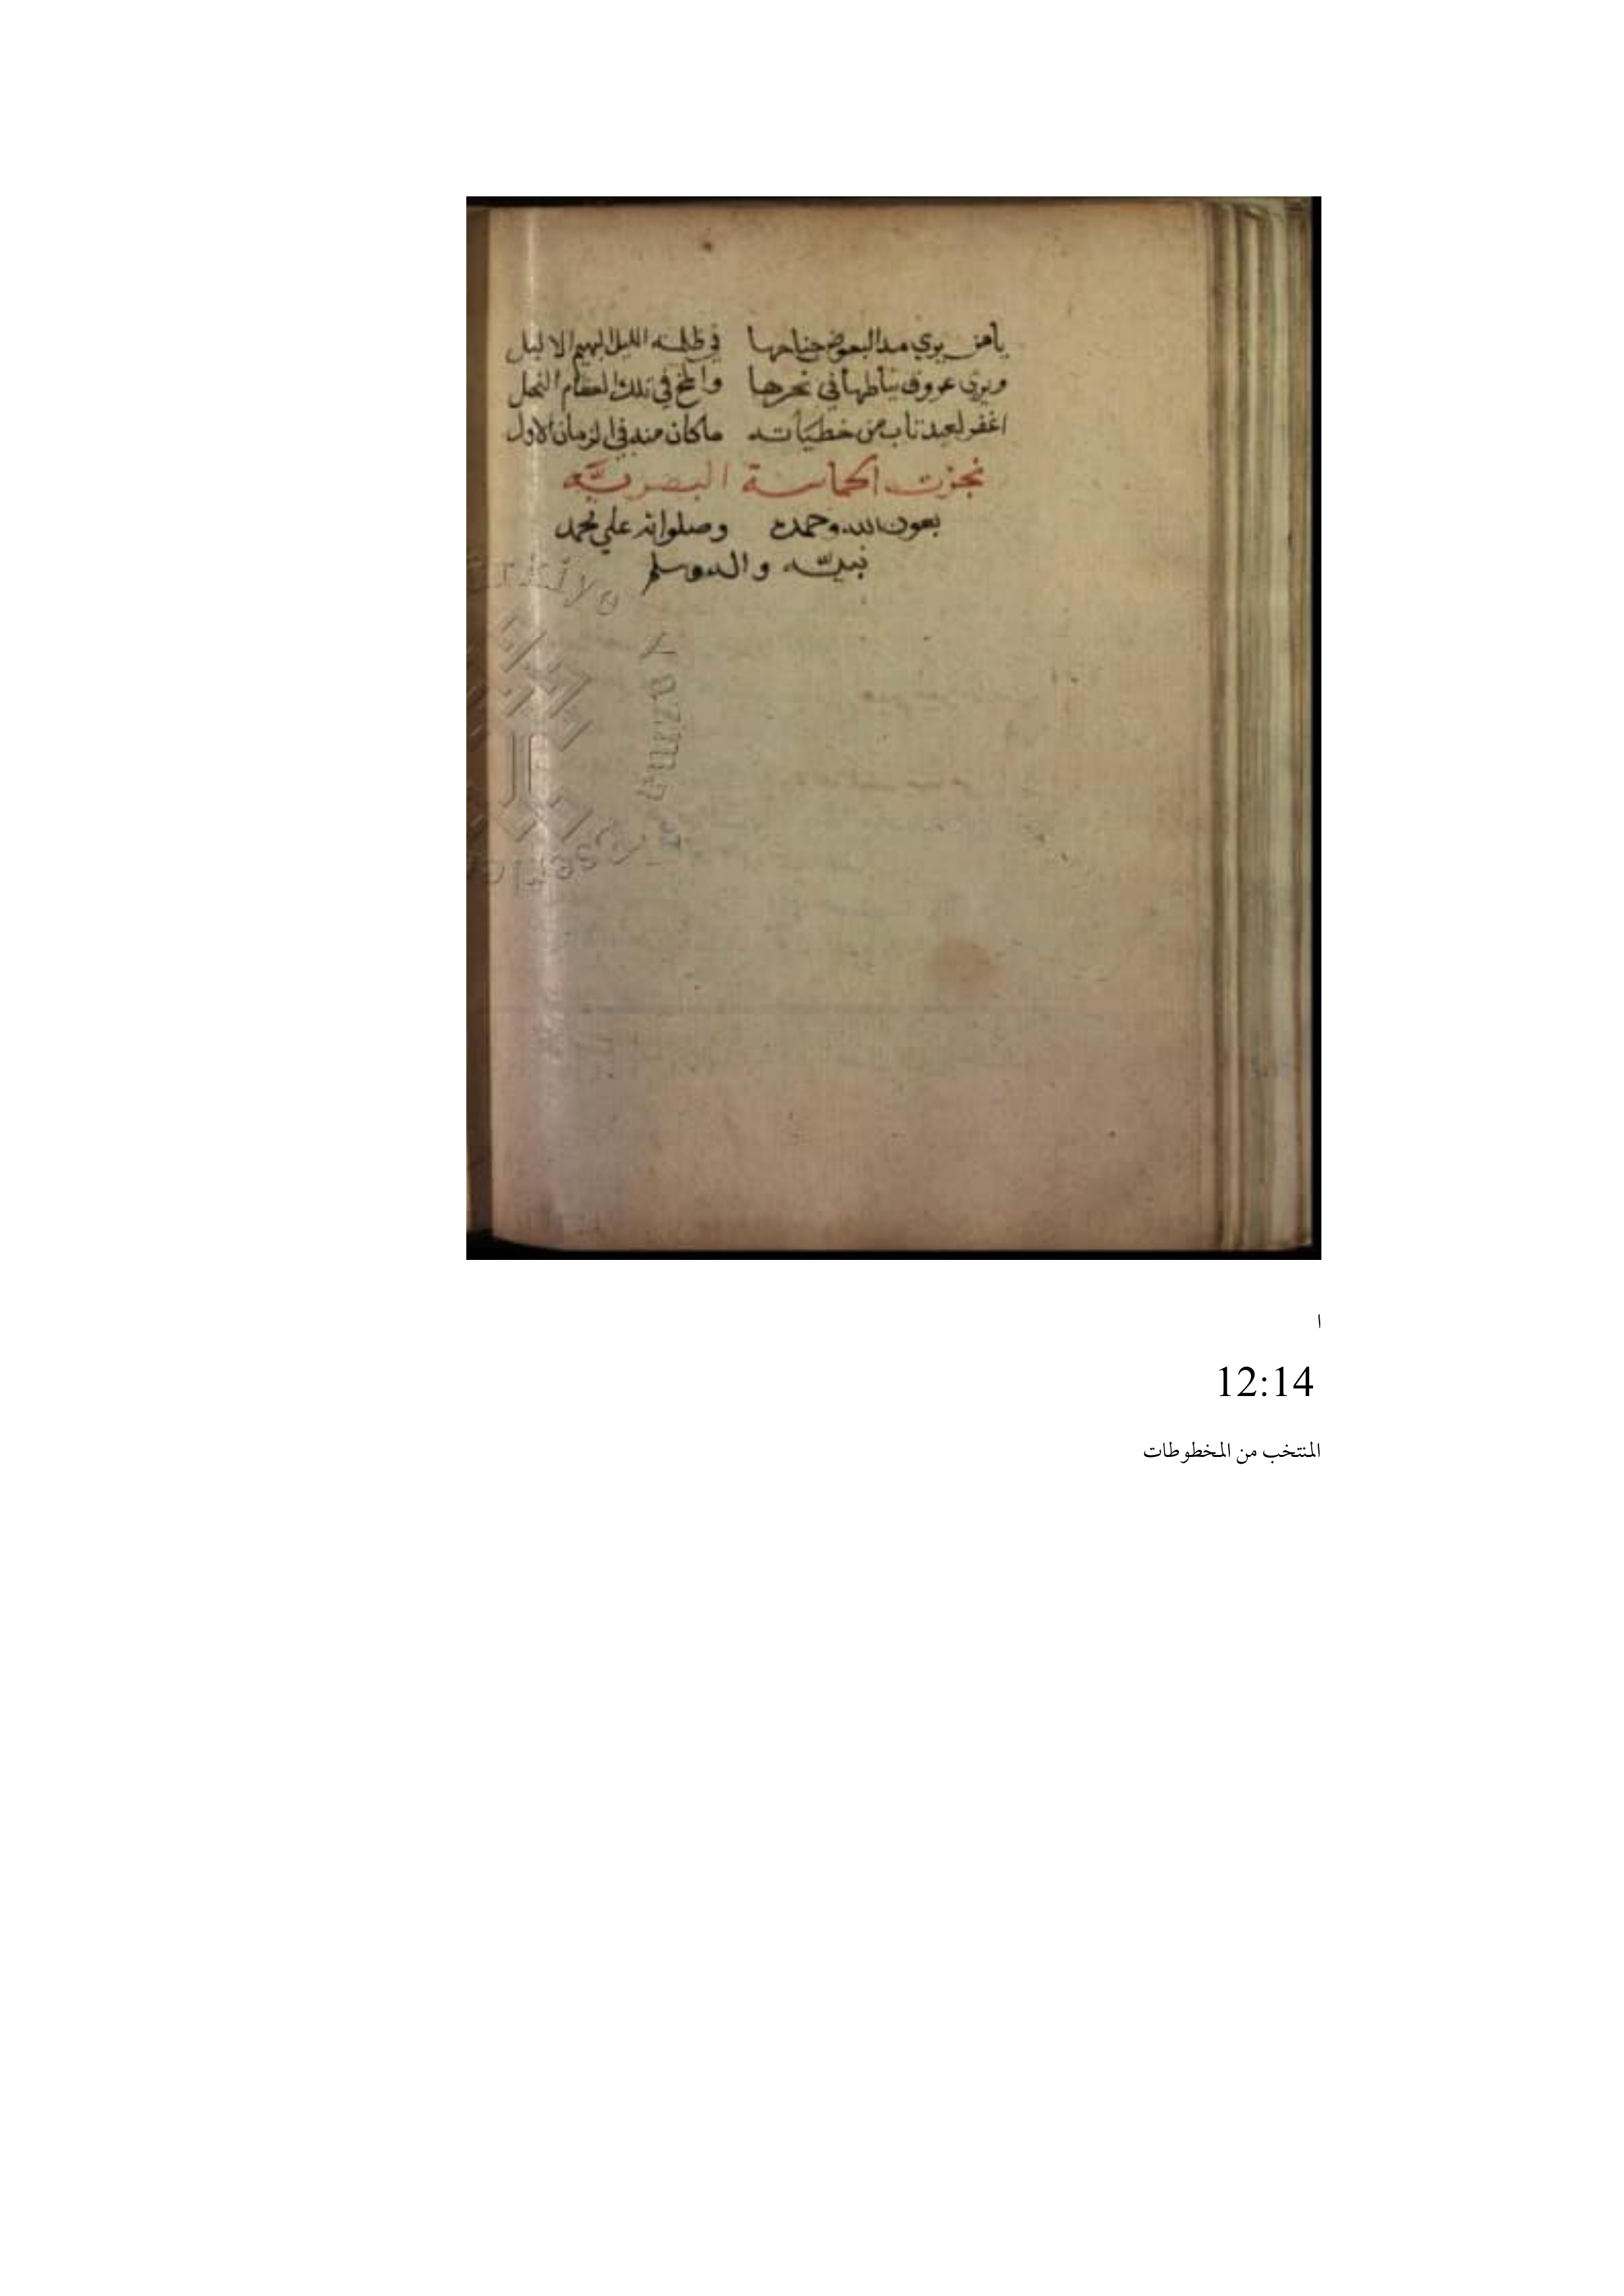 يا من يري مد البعوض جناحها في ظلمة الليل البهيم الاليل
ويري عروق نياطها في نحرها والمخ في تلك العظام النحل
اغفر لعبد تاب من خطيآته ما كان منه في الزمان الاول
نجزت الحماسة البصريَّه
بعون الله وحمده وصلواته علي محمد
نبيّه واله وسلم
ا
12:14
المنتخب من المخطوطات